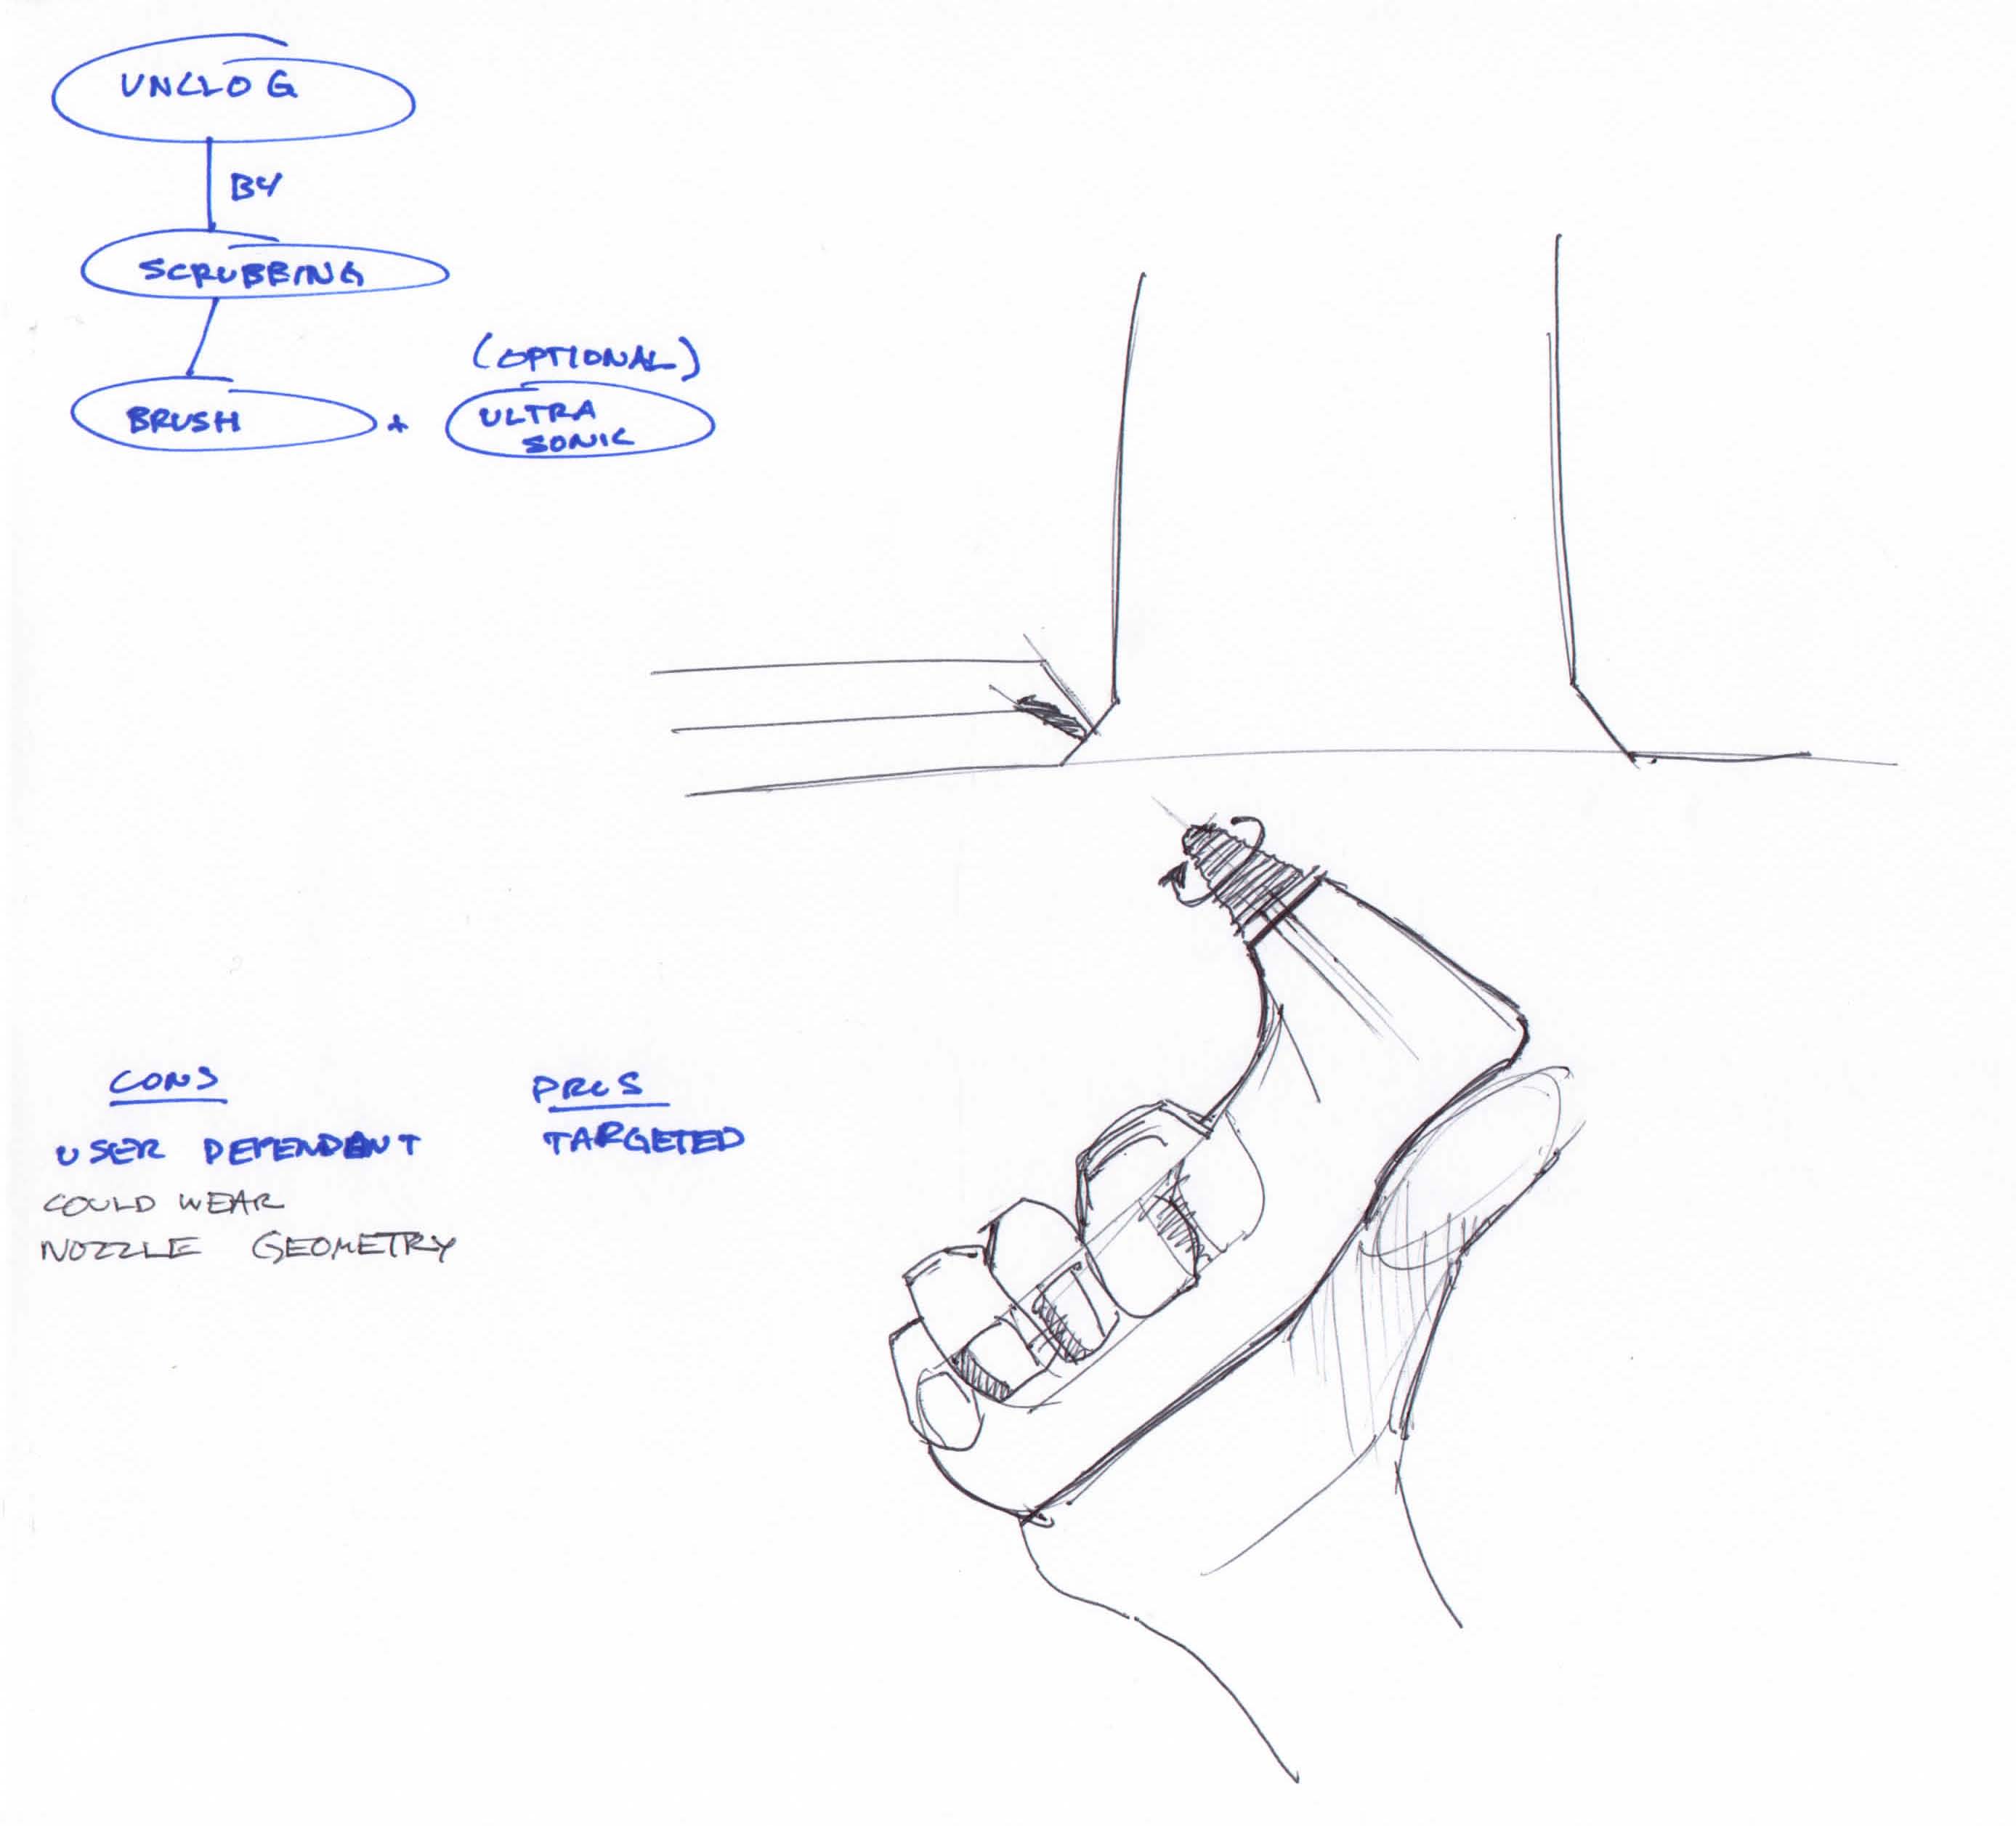 UNCLOG
BY
SCRUBBING
(OPTIONAL)
BRUSH + ULTRA
SONIC
CONS
USER DEPENDENT
COULD WEAR
NOZZLE GEOMETRY
PROS
TARGETED